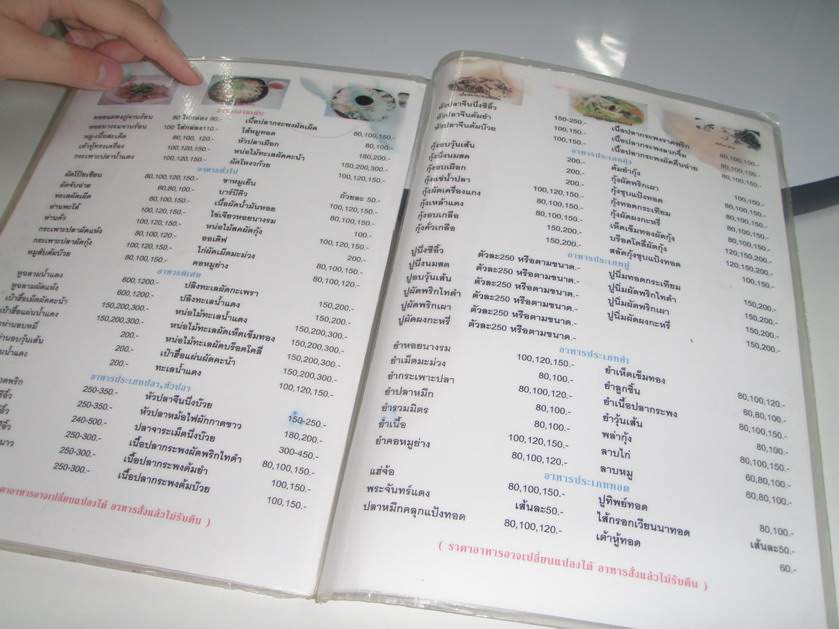 อาหารจานเด่น
หอยแมลงภู่จานร้อน 80 ใส่กล่อง 90.-
หอยนางรมจานร้อน 100 ใส่กล่อง110.-
หมู-เนื้อสะเต็ค 80,100, 120.-
เต้าหู้ทรงเครื่อง 100,120,150.-
กระเพาะปลาน้ำแดง 100,120,150.-
เนื้อปลากระพงผัดเผ็ด 80,100,150.-
ไส้หมูทอด 80,100.-
หัวปลาเผือก
หน่อไม้ทะเลผัดคะน้า 150,200,300.-
ผัดโหงวก๊วย 100,120,150.-
อาหารทั่วไป
ผัดโป๊ยเซียน 100,120,150.-
ผัดจับฉ่าย 60,80,100.-
ทะเลผัดเผ็ด 80,100,150.-
ห่านพะโล้ 100,120,150.-
กระเพาะปลาผัดกุ้ง 100,120,150.-
หมูสับต้มบ๊วย 80,100.-
ขาหมูเย็น
บาร์บีคิว ถ้วยละ 50.-
เนื้อผัดน้ำมันหอย 80,100,150.-
ไข่เจียวหอยนางรม 100.-
หน่อไม้สดผัดกุ้ง 100,120,150.-
ออเดิฟ
ไก่ผัดเม็ดมะม่วง 80,100,150.-
คอหมูย่าง 80,100,120.-
อาหารพิเศษ
หูฉลามน้ำแดง 600,1200.-
หูฉลามผัดแห้ง 600,1200.-
เป๋าฮื้อเม็ดผัดคะน้า 150,200,300.-
เป๋าฮื้อแผ่นน้ำแดง 150,200,300.-
200.-
200.-
200.-
ปลิงทะเลผัดกะเพรา 150,200.-
ปลิงทะเลน้ำแดง 150,200.-
หน่อไม้ทะเลน้ำแดง 150,200,300.-
หน่อไม้ทะเลผัดเห็ดเข็มทอง 150,200,300.-
หน่อไม้ทะเลผัดบร็อคโคลี่ 150,200,300.-
เป๋าฮื้อแผ่นผัดคะน้า 150,200,300.-
ทะเลน้ำแดง 100,120,150.-
อาหารประเภทปลา,หัวปลา
250-350.-
250-350.-
240-500.-
250-300.-
250-300.-
250-300.-
หัวปลาจีนนึ่งบ๊วย 150-250.-
หัวปลาหม้อไฟผักกาดขาว 180,200.-
ปลาจาระเม็ดนึ่งบ๊วย 300-450.-
เนื้อปลากระพงผัดพริกไทดำ 80,100,150.-
เนื้อปลากระพงต้มยำ 100,150.-
เนื้อปลากระพงต้มบ๊วย 100,150.-
คาอาหารอาจเปลี่ยนแปลงได้ อาหารสั่งแล้วไม่รับคืน )
หัวปลาจีนนึ่งซีอิ้ว 150-250.-
หัวปลาจีนต้มยำ 100,150.-
หัวปลาจีนต้มบ๊วย 100,150.-
เนื้อปลากระพงราดพริก 80,100,150.-
เนื้อปลากระพงลวกจิ้ม 80,100,150.-
เนื้อปลากระพงผัดคื่นฉ่าย 80,100,150.-
อาหารประเภทกุ้ง
กุ้งอบวุ้นเส้น 200.-
กุ้งนึ่งนมสด 200.-
กุ้งอบเผือก 200.-
กุ้งแช่น้ำปลา 100,120,150.-
กุ้งผัดเครื่องแกง 80,100,150.-
กุ้งเหล้าแดง 150,200.-
กุ้งอบเกลือ 150,200.-
กุ้งคั่วเกลือ
ต้มยำกุ้ง 100,150.-
กุ้งผัดพริกเผา 80,100,150.-
กุ้งชุบแป้งทอด 80,100,150.-
กุ้งทอดกระเทียม 80,100,150.-
กุ้งผัดผงกะหรี่ 80,100,150.-
เห็ดเข็มทองผัดกุ้ง 120,150,200.-
บร็อคโคลี่ผัดกุ้ง 120,150,200.-
สลัดกุ้งชุบแป้งทอด 100,150.-
อาหารประเภทปู
ปูนึ่งซีอิ้ว ตัวละ250 หรือตามขนาด.-
ปูนึ่งนมสด ตัวละ250 หรือตามขนาด.-
ปูอบวุ้นเส้น ตัวละ250 หรือตามขนาด.-
ปูผัดพริกไทดำ ตัวละ250 หรือตามขนาด.-
ปูผัดพริกเผา ตัวละ250 หรือตามขนาด.-
ปูผัดผงกะหรี่ ตัวละ250 หรือตามขนาด.-
ปูนิ่มทอดกระเทียม 150,200.-
ปูนิ่มผัดพริกไทดำ 150,200.-
ปูนิ่มผัดพริกเผา 150,200.-
ปูนิ่มผัดผงกะหรี่ 150,200.-
อาหารประเภทยำ
ยำหอยนางรม 100,120,150.-
ยำเม็ดมะม่วง 80,100.-
ยำกระเพาะปลา 80,100.-
ยำปลาหมึก 80,100.-
ยำรวมมิตร 100,120,150.-
ยำเนื้อ 80,100,120.-
ยำคอหมูย่าง
ยำเห็ดเข็มทอง 80,100,120.-
ยำลูกชิ้น 60,80,100.-
ยำเนื้อปลากระพง 80,100,150.-
ยำวุ้นเส้น 80,100.-
พล่ากุ้ง 80,100,150.-
ลาบไก่ 60,80,100.-
ลาบหมู 60,80,100.-
อาหารประเภททอด
แฮ่จ้อ 80,100,150.-
พระจันทร์แดง เส้นละ50.-
ปลาหมึกคลุกแป้งทอด 80,100,120.-
ปูทิพย์ทอด 80,100.-
ไส้กรอกเวียนนาทอด เส้นละ50.-
เต้าหู้ทอด 60.-
( ราคาอาหารอาจเปลี่ยนแปลงได้ อาหารสั่งแล้วไม่รับคืน )